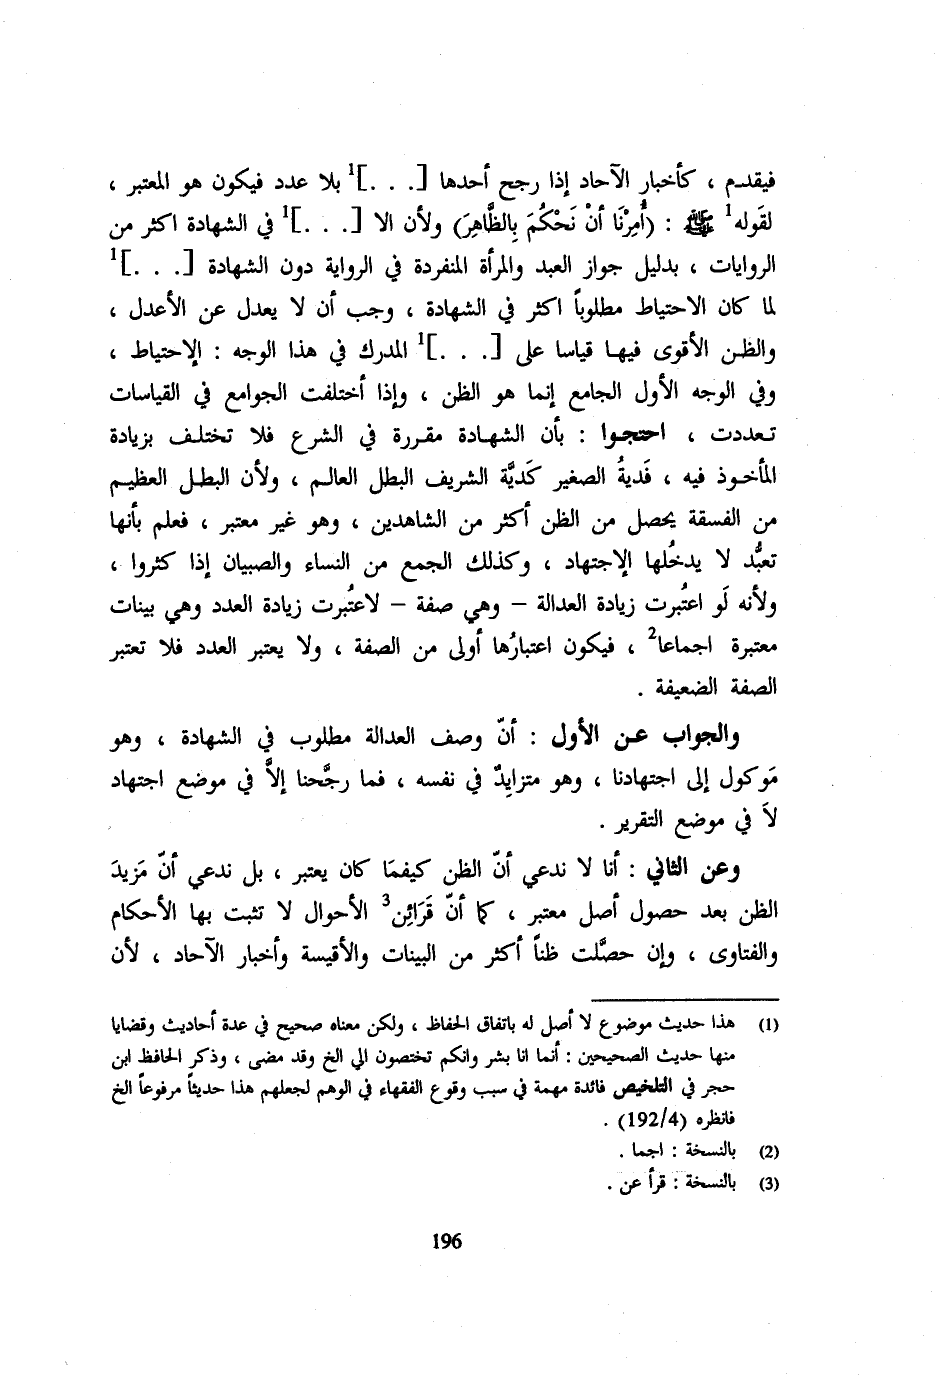 فيقدم ، كأخبار الآحاد إذا رجح أحدها [. . .]1 بلا عدد فيكون هو المعتبر ،
لقَوله1 ﷺ : (أُمِرْنَا أنْ نَحْكُمَ بِالظَّاهِرَ) ولأن الا [. . .]1 في الشهادة اكثر من
الروايات ، بدليل جواز العبد والمرأة المنفردة في الرواية دون الشهادة [. . .]1
لما كان الاحتياط مطلوباً اكثر في الشهادة ، وجب أن لا يعدل عن الأعدل ،
والظن الأقوى فيها قياسا على [. . .]1 المدرك في هذا الوجه : الإحتياط ،
وفي الوجه الأول الجامع إنما هو الظن ، وإذا أختلفت الجوامع في القياسات
تعددت ، احتجوا : بأن الشهادة مقررة في الشرع فلا تختلف بزيادة
المأخوذ فيه ، فَديةُ الصغير كَديَّة الشريف البطل العالم ، ولأن البطل العظيم
من الفسقة يحصل من الظن أكثر من الشاهدين ، وهو غير معتبر ، فعلم بأنها
تعبُّد لا يدخُلها الإجتهاد ، وكذلك الجمع من النساء والصبيان إذا كثروا ،
ولأنه لَو اعتُبرت زيادة العدالة – وهي صفة – لاعتُبرت زيادة العدد وهي بينات
معتبرة اجماعا2 ، فيكون اعتبارُها أولى من الصفة ، ولا يعتبر العدد فلا تعتبر
الصفة الضعيفة .
والجواب عن الأول : أنّ وصف العدالة مطلوب في الشهادة ، وهو
مَوكول إلى اجتهادنا ، وهو متزايِدٌ في نفسه ، فما رجَّحنا إلاَّ في موضع اجتهاد
لاَ في موضع التقرير .
وعن الثاني : أنا لا ندعي أنّ الظن كيفمَا كان يعتبر ، بل ندعي أنّ مَزيدَ
الظن بعد حصول أصل معتبر ، كما أنّ قَرَائِن3 الأحوال لا تثبت بها الأحكام
والفتاوى ، وإن حصَّلت ظناً أكثر من البينات والأقيسة وأخبار الآحاد ، لأن
(1) هذا حديث موضوع لا أصل له باتفاق الحفاظ ، ولكن معناه صحيح في عدة أحاديث وقضايا
منها حديث الصحيحين : أنما انا بشر وانكم تختصون الي الخ وقد مضى ، وذكر الحافظ ابن
حجر في التلخيص فائدة مهمة في سبب وقوع الفقهاء في الوهم لجعلهم هذا حديثاً مرفوعاً الخ
فانظره (192/4) .
(2) بالنسخة : اجما .
(3) بالنسخة : قرأ عن .
196